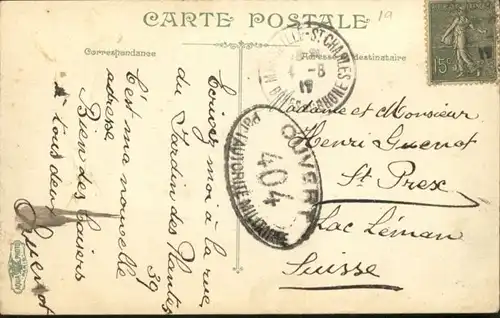 CARTE POSTALE
19
Correspondance
Adresse du destinataire
15c
ST CHARLES
BOUCHES DU RHONE
4 - 8
OUVERT
404
PAR L'AUTORITÉ MILITAIRE
Madame et Monsieur
Henri Guenot
St Prex
Lac Léman
Suisse
Ecrivez moi à la rue
du Jardin des Plantes
39
C'est ma nouvelle
adresse
Bien des baisers
à tous deux
Guenot